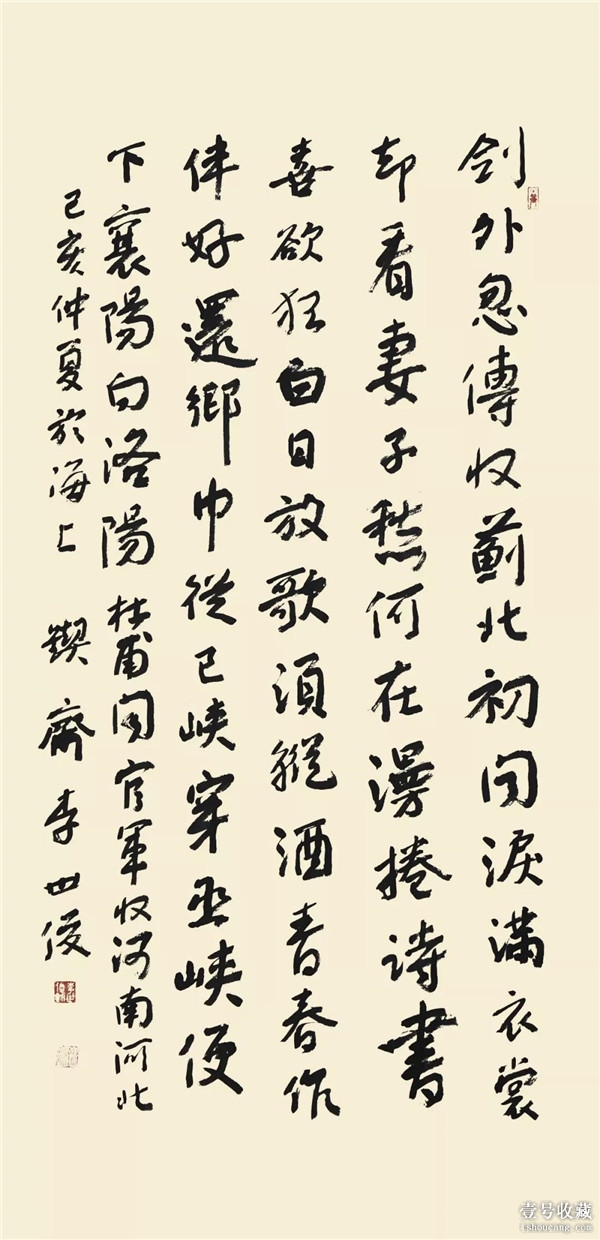 剑外忽傳收薊北初闻淚滿衣裳
却看妻子愁何在漫捲诗書
喜欲狂白日放歌須縱酒青春作
伴好還鄉即從巴峡穿巫峡便
下襄陽向洛陽 杜甫闻官軍收河南河北
己亥仲夏於海上 鍥齋李世俊
壹号收藏
1shoucang.com